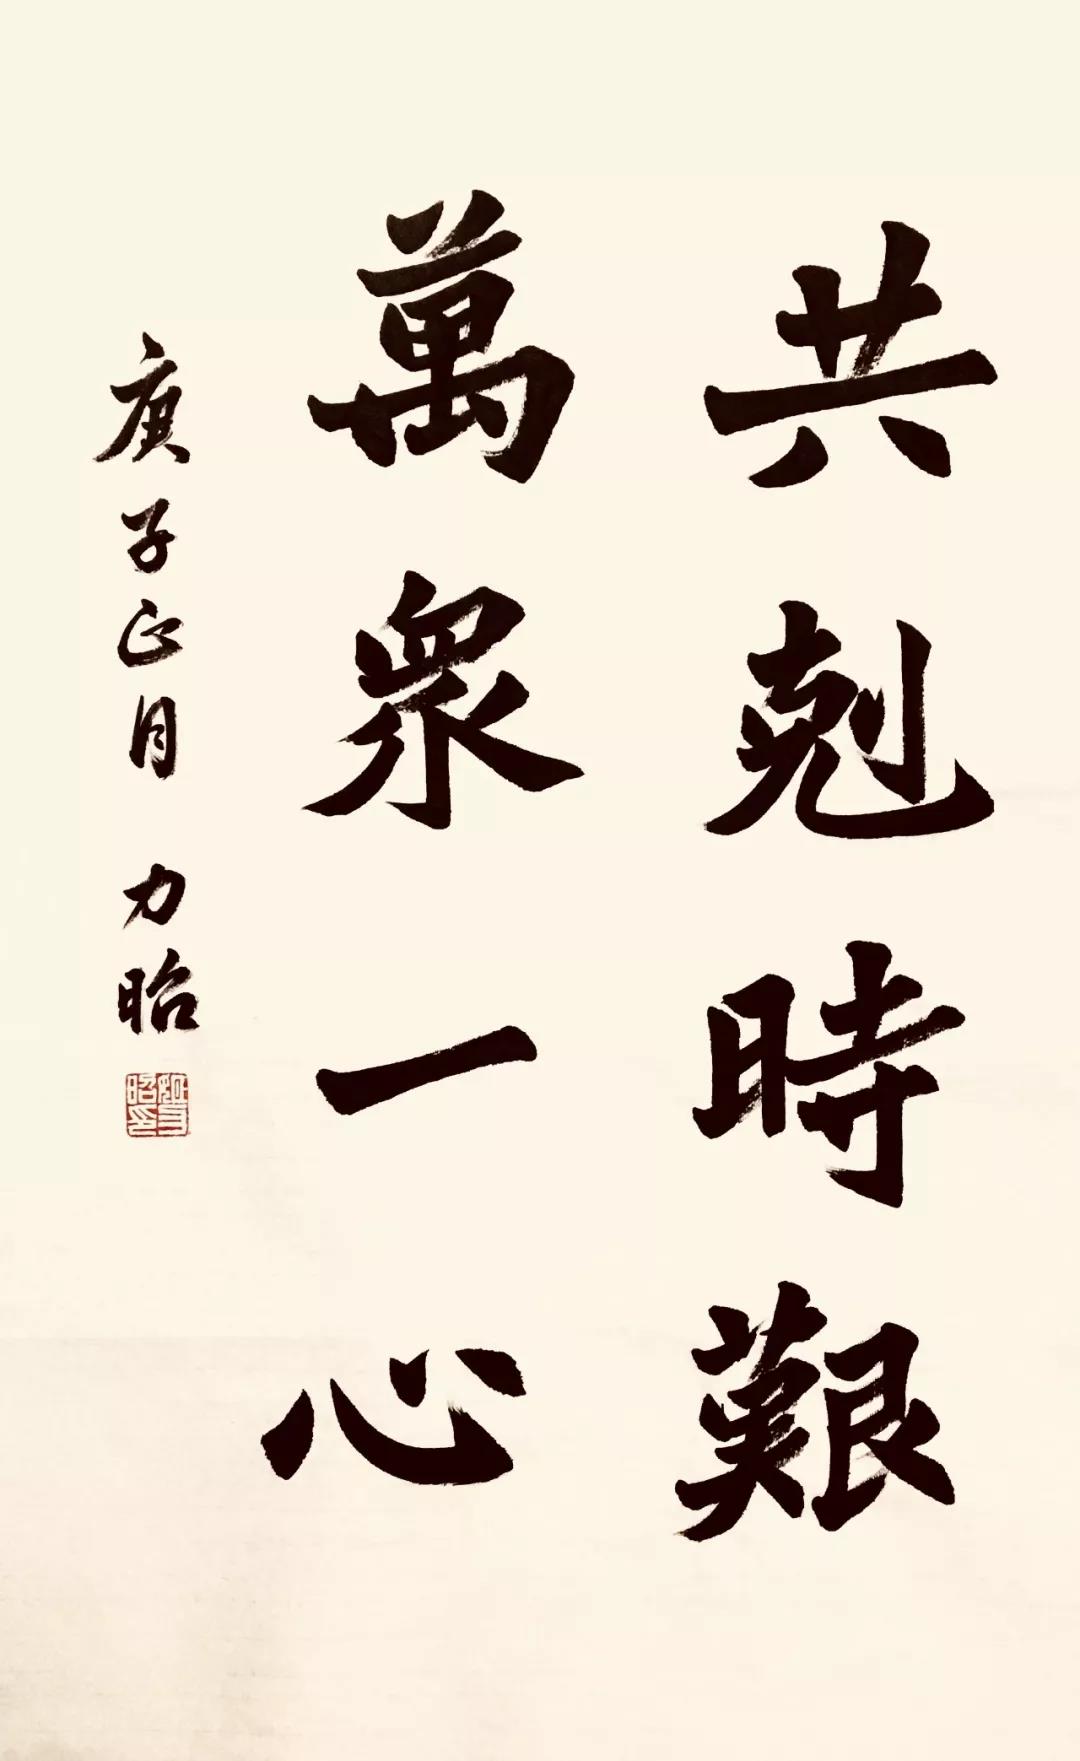 共剋時艱
萬衆一心
庚子正月 力昭